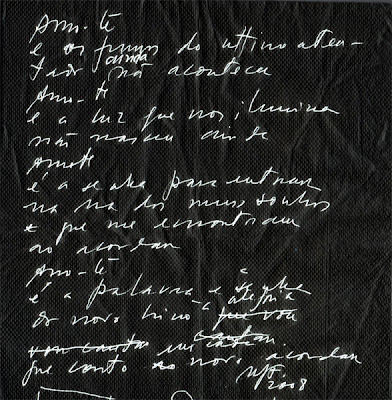 Amo-te
e os do ultimo aten-
tado ainda não aconteceu
Amo-te
e a luz que nos ilumina
não nasceu ainda
Amo-te
é a senha para entrar
na rua dos meus sonhos
e que me encontram
ao acordar
Amo-te
é a palavra e a senha
do novo hino a alegria que vou
vou cantar cantar
que canto ao novo acordar
2008